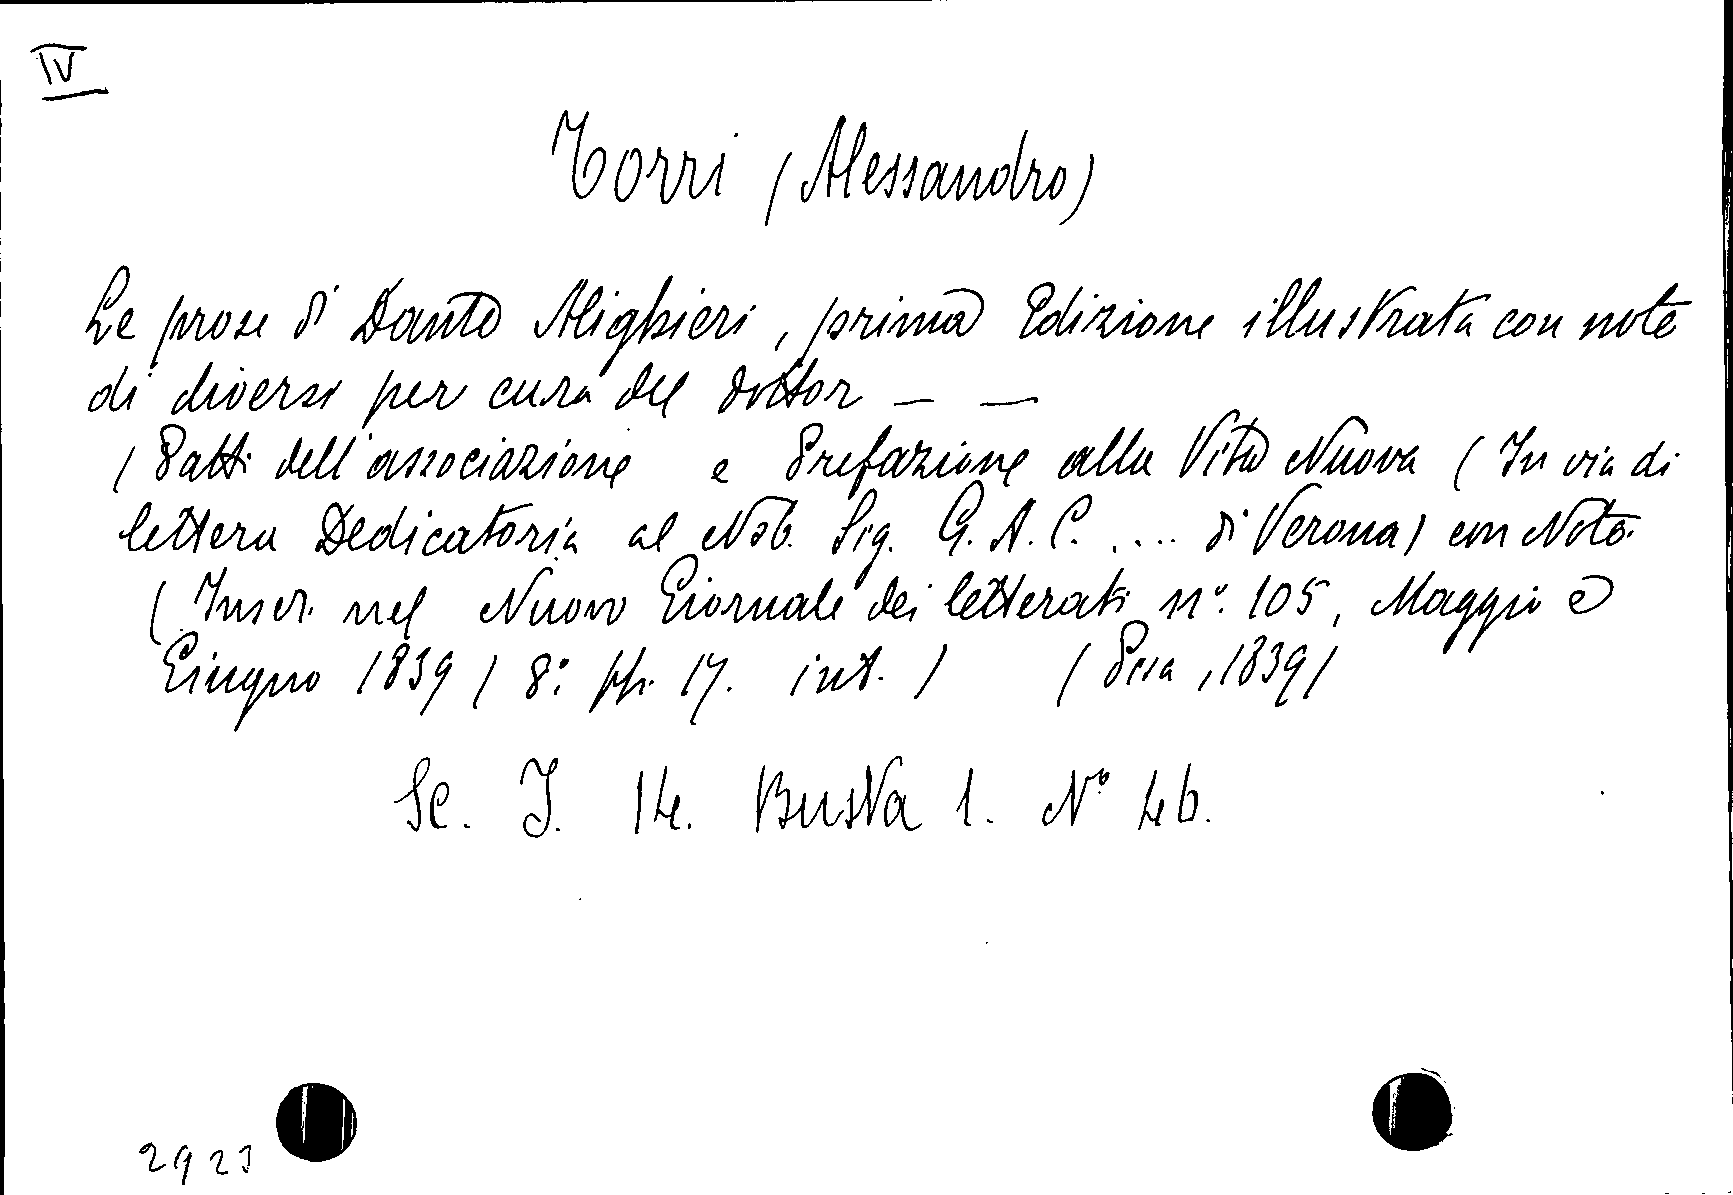 IV
Torri (Alessandro)
Le prose di Dante Alighieri, prima Edizione illustrata con note
di diversi per cura del dottor — —
(Patti dell'associazione e Prefazione alla Vita Nuova (In via di
lettera Dedicatoria al Nob. Sig. G. A. C. .... di Verona) con Note.
(Inser. nel Nuovo Giornale dei letterati n.º 105, Maggio e
Giugno 1839) 8.º pp. 17. int.) (Pisa, 1839)
Sc. I. 14. Busta 1. Nº 46.
2923